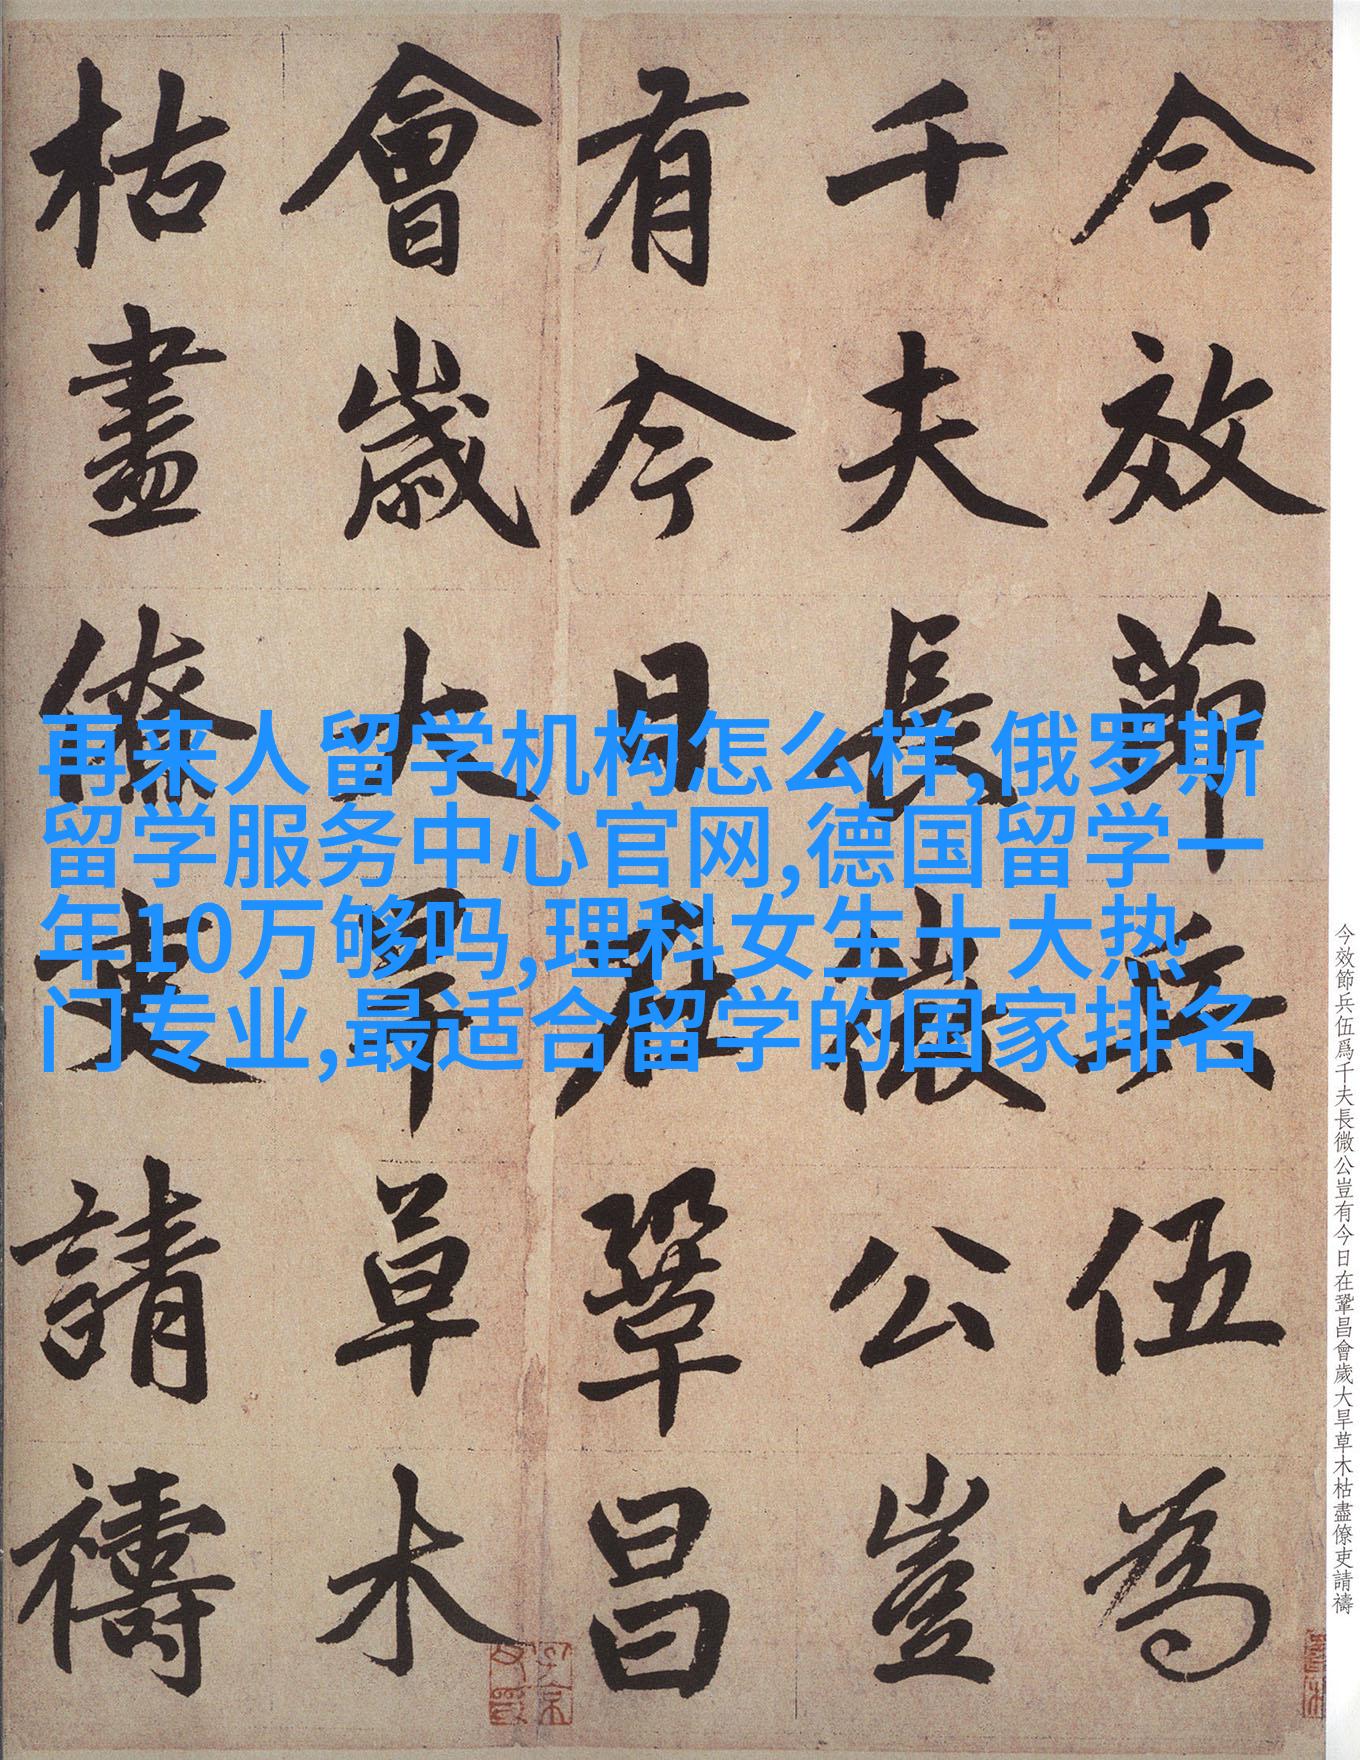 今效節兵伍為
千夫長微公豈
有今日在鞏昌
會歲大旱草木
枯盡僚吏請禱
再来人留学机构怎么样,俄罗斯
留学服务中心官网,德国留学一
年10万够吗,理科女生十大热
门专业,最适合留学的国家排名
今效節兵伍爲千夫長微公豈有今日在鞏昌會歲大旱草木枯盡僚吏請禱